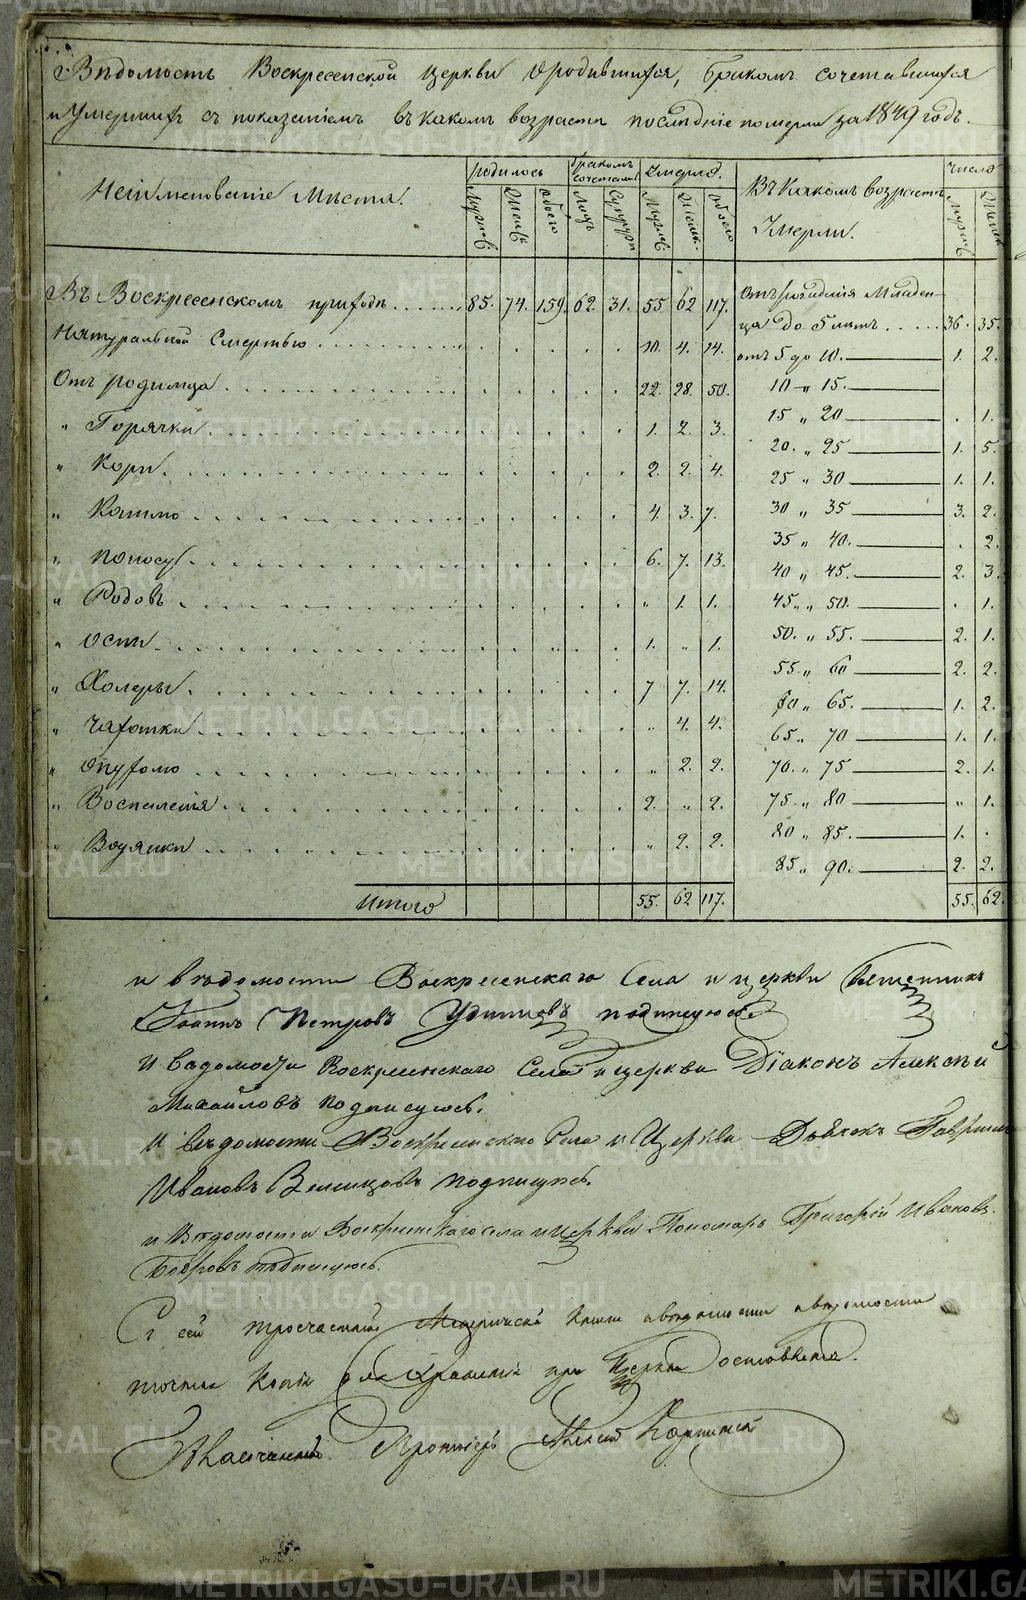 Вѣдомость Воскресенской церкви о родившихся, бракомъ сочетавшихся
и умершихъ съ показаніемъ въ какомъ возрастѣ послѣдніе померли за 1849 годъ.
Наименованіе Мѣста. родилось бракомъ сочетались Умерло. Въ какомъ возрастѣ Умерли. Число
Мужеск Женск обоего Лицъ Супруж Мужеск Женск. обоего мужеск Женск
Въ Воскресенскомъ приходѣ 85. 74. 159. 62. 31. 55 62 117. Отъ рожденія Младен-
ца до 5 лѣтъ 36. 35.
Натуральной Смертью 10. 4. 14. отъ 5 до 10. 1. 2.
Отъ родимца 22. 28. 50. 10 — 15.
" Горячки 1. 2. 3. 15 " 20 . 1.
20. " 25 1. 5.
" Кори 2. 2. 4. 25 " 30 1. 1.
" Кашлю 4. 3. 7. 30 " 35 3. 2.
35 " 40. . 2.
" Поносу 6. 7. 13. 40 " 45. 2. 3.
" Родовъ " 1. 1. 45. " 50. . 1.
" Оспы 1. " 1. 50. " 55. 2. 1.
55. " 60 2. 2.
" Холеры 7 7. 14. 60 " 65. 1. 2.
" Чахотки " 4. 4. 65. " 70 1. 1.
" Опухолю " 2. 2. 70. " 75 2. 1.
" Воспаленія 2. " 2. 75. " 80 " 1.
" Водянки " 2. 2. 80 " 85. 1. .
85. " 90. 2. 2.
Итого 55. 62 117. 55. 62.
и вѣдомости Воскресенскаго Села и церкви Священникъ
Іоаннъ Петровъ подписуюсь
И ведомости Воскресенскаго Села и церкви Діаконъ Алексѣй
Михайловъ подписуюсь.
И вѣдомости Воскресенскаго Села и Церкви Дьячекъ Гавриилъ
Ивановъ подписуюсь.
и Вѣдомости Воскресенскаго села и церкви Пономарь Григорей Ивановъ
Бобровъ подписуюсь.
Съ сей тросчастной Метрической Книги и вѣдомости
точная Копія для Храненія при Церкви оставлена.
Благочинный Протоіерей Алексей
METRIKI.GASO-URAL.RU